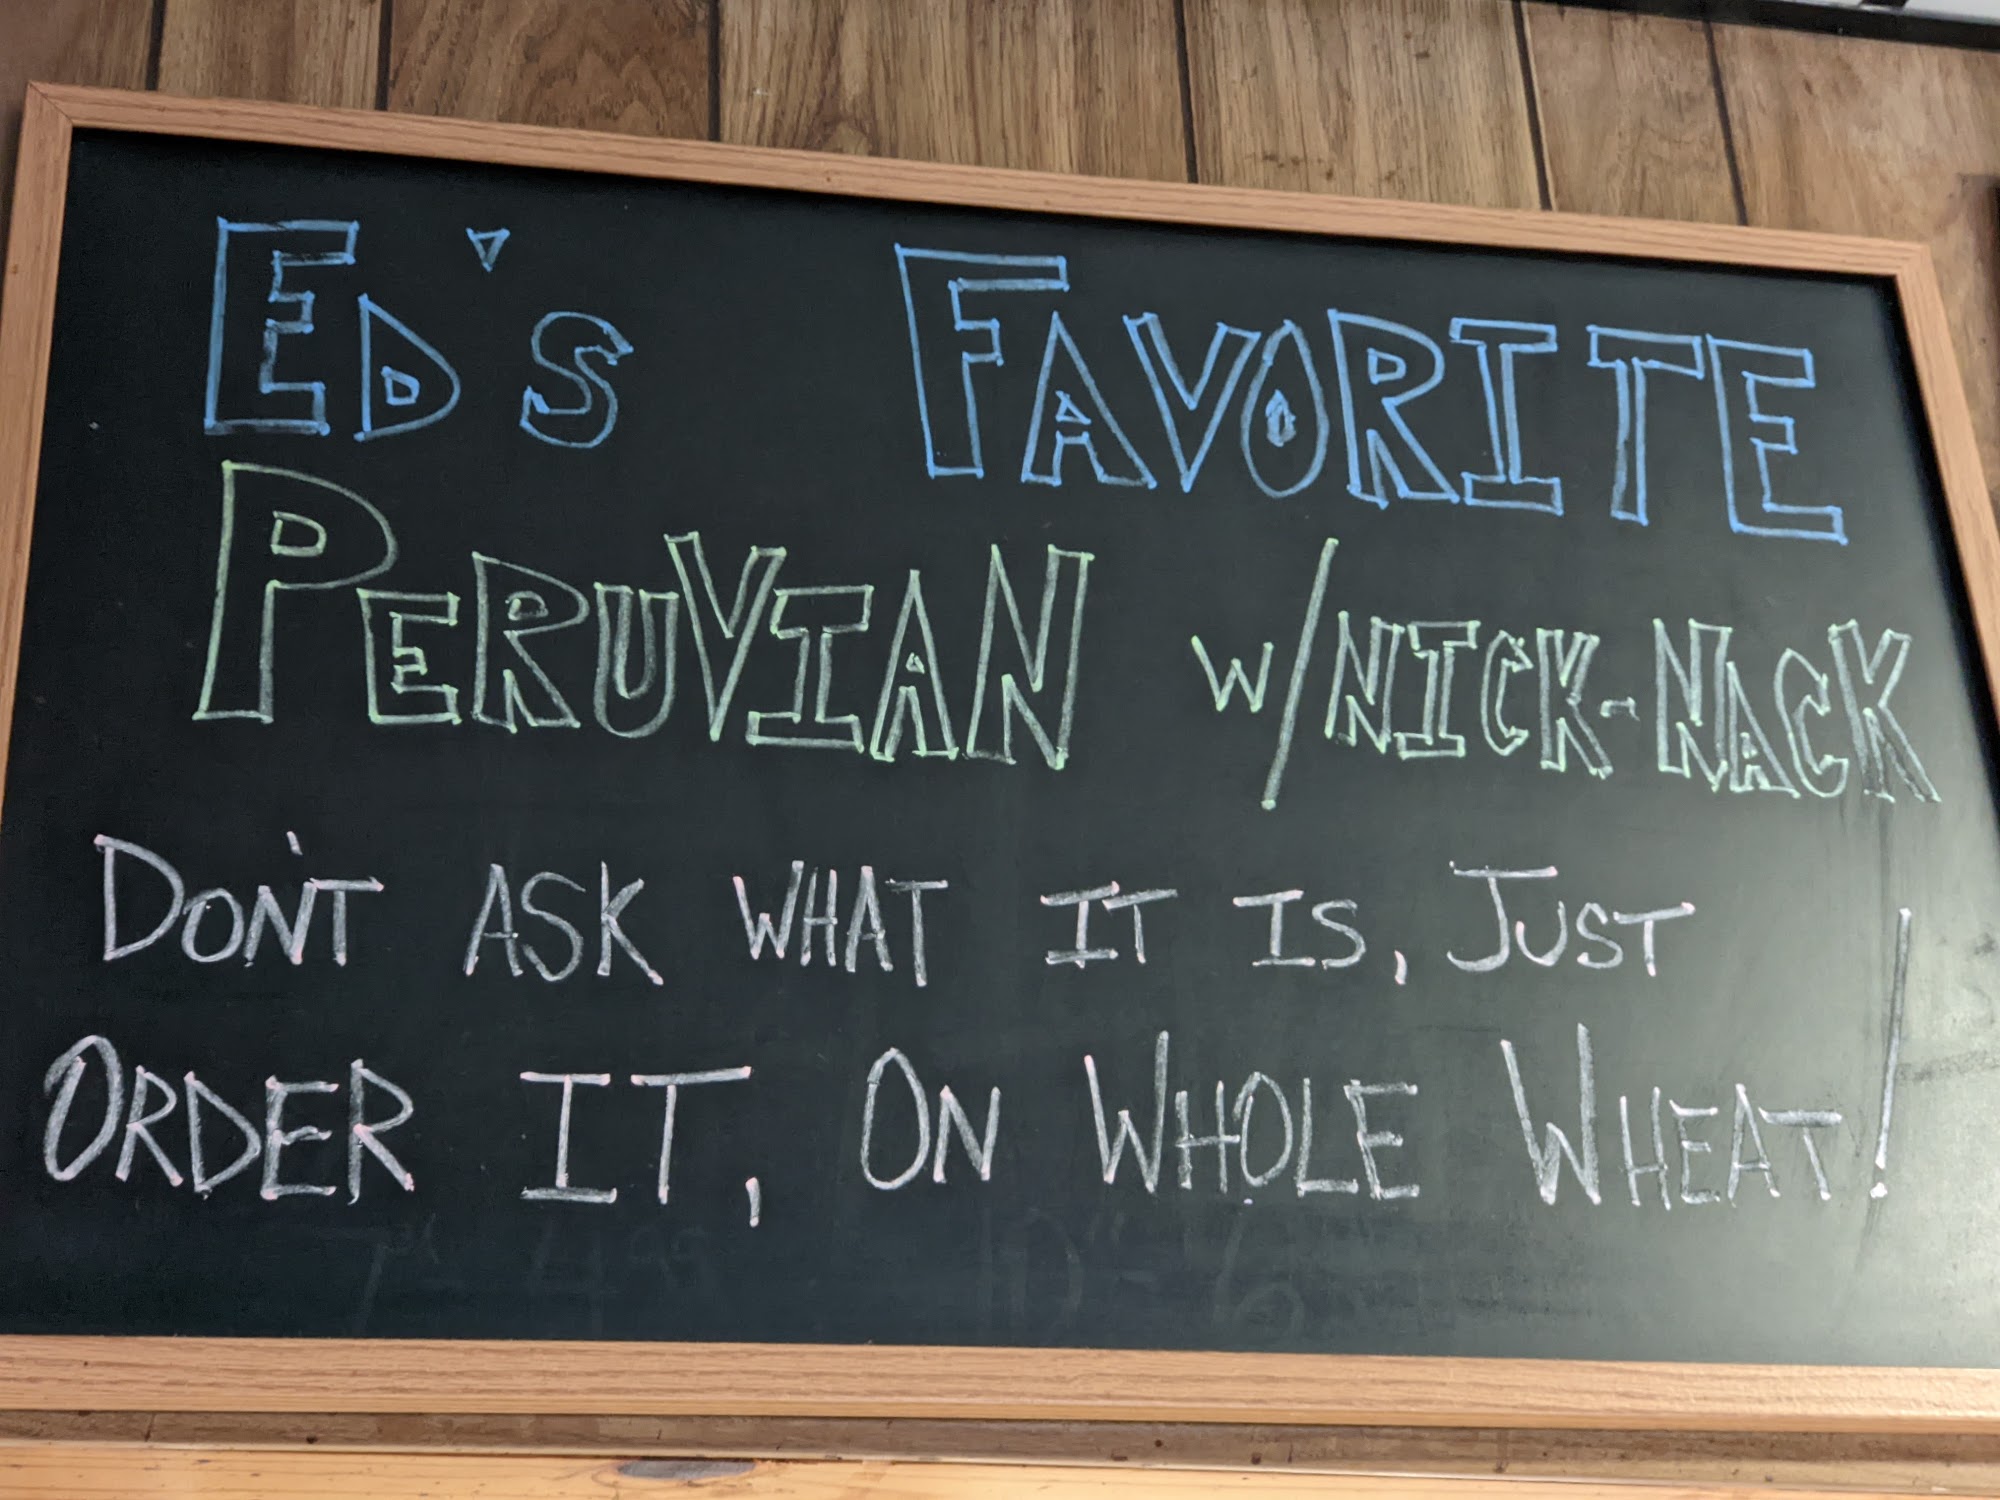 Ed's Favorite
Peruvian w/Nick-Nack
Don't ask what it is, Just
Order it, On Whole Wheat!